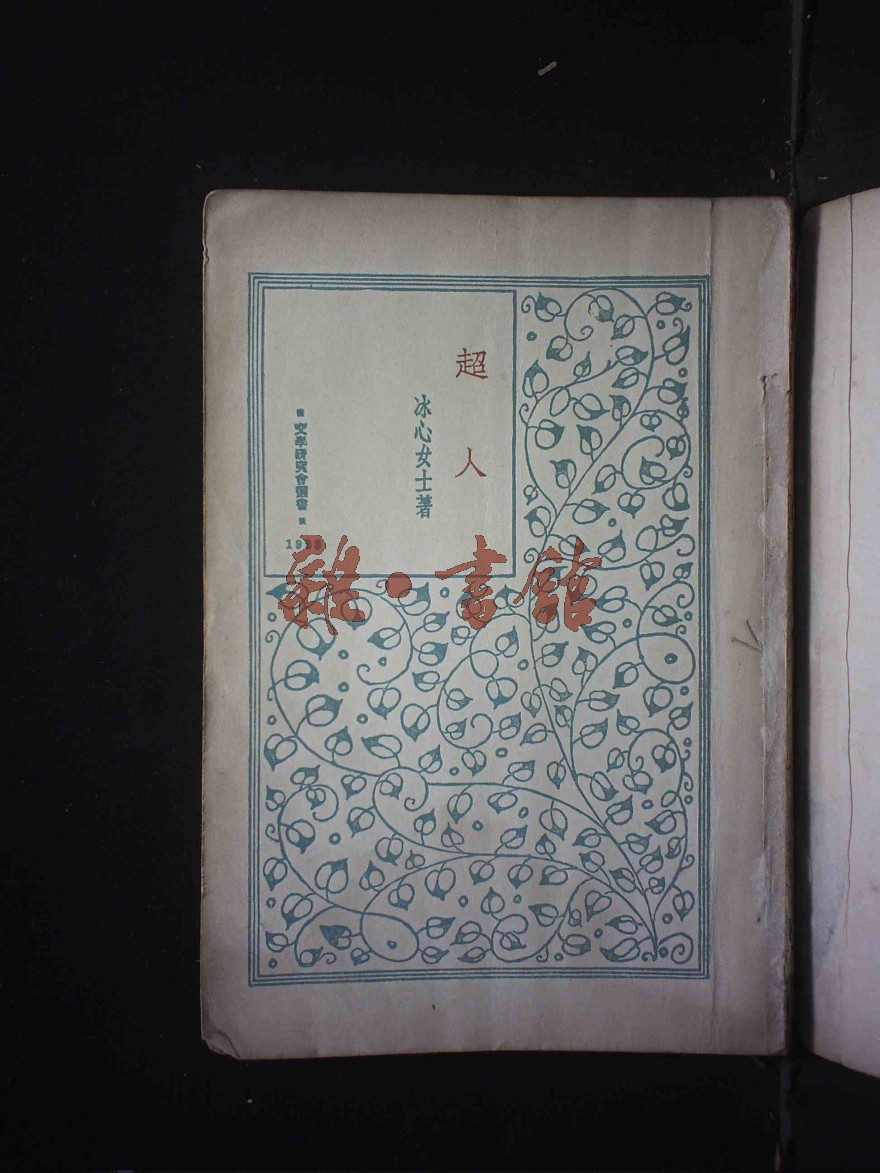 超人
冰心女士著
文學研究會叢書
1923
雜·書館